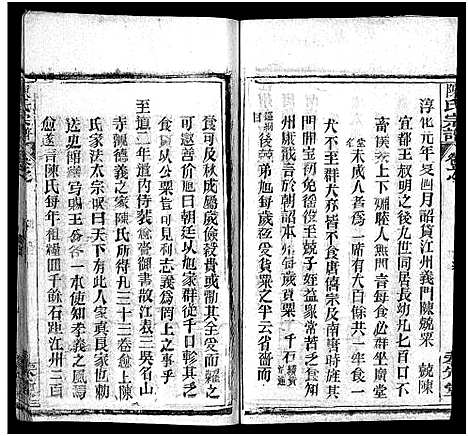 陳氏宗譜
淳化元年夏四月詔貸江州義門陳兢粟　兢陳
宜都王叔明之後九世同居長幼凡七百口不
畜婢妾上下姻睦人無閒言每食必群坐廣堂
未成人者別爲一席有犬百餘共一牢食一
犬不至群犬亦皆不食唐僖宗及南唐時旌其
門開寶初免徭役至兢子姪益衆常苦乏食知
州康戩言於朝詔本州每歲貸粟二千石
其後兢弟旭每歲受貸粟之半云省嗇而
食可及秋成屬歲儉穀貴或勸其全受而糶之
可邀善價旭曰朝廷以旭家群從千口軫其乏
食貸以公粟豈可見利忘義爲罔上之事乎
至道二年遣內侍裴愈賫御書故江表三吳名山
寺觀德義之家陳氏所得凡三十三卷愈上陳
氏家法太宗嘆曰天下有此人家眞良家也勅
送史館繕寫賜王公各一本使知孝義之風焉
愈遂言陳氏每年租糧四千餘石距江州二百